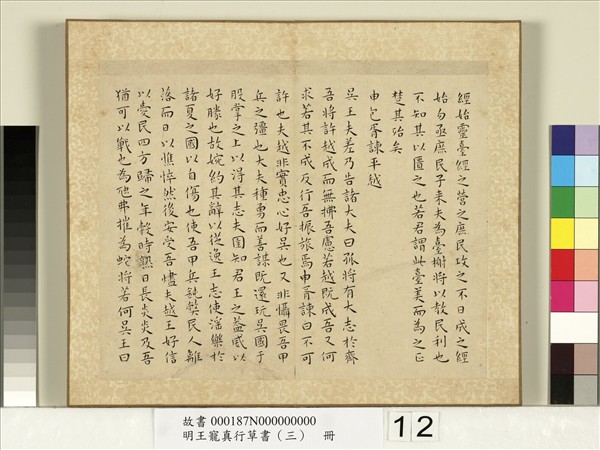 經始靈臺經之營之庶民攻之不日成之經
始勿亟庶民子來夫為臺榭將以教民利也
不知其以匱之也若君謂此臺美而為之正
楚其殆矣
申包胥諫平越
吳王夫差乃告諸大夫曰孤將有大志於齊
吾將許越成而無拂吾慮若越既成吾又何
求若其不成反行吾振旅焉申胥諫曰不可
許也夫越非實忠心好吳也又非懾畏吾甲
兵之彊也大夫種勇而善謀既還玩吳國于
股掌之上以得其志夫固知君王之蓋威以
好勝也故婉約其辭以從逸王志使淫樂於
諸夏之國以自傷也使吾甲兵鈍獘民人離
落而日以憔悴然後安受吾燼夫越王好信
以愛民四方歸之年穀時熟日長炎炎及吾
猶可以戰也為虺弗摧為蛇將若何吳王曰
故書 000187N000000000
明王寵真行草書（三） 冊
12